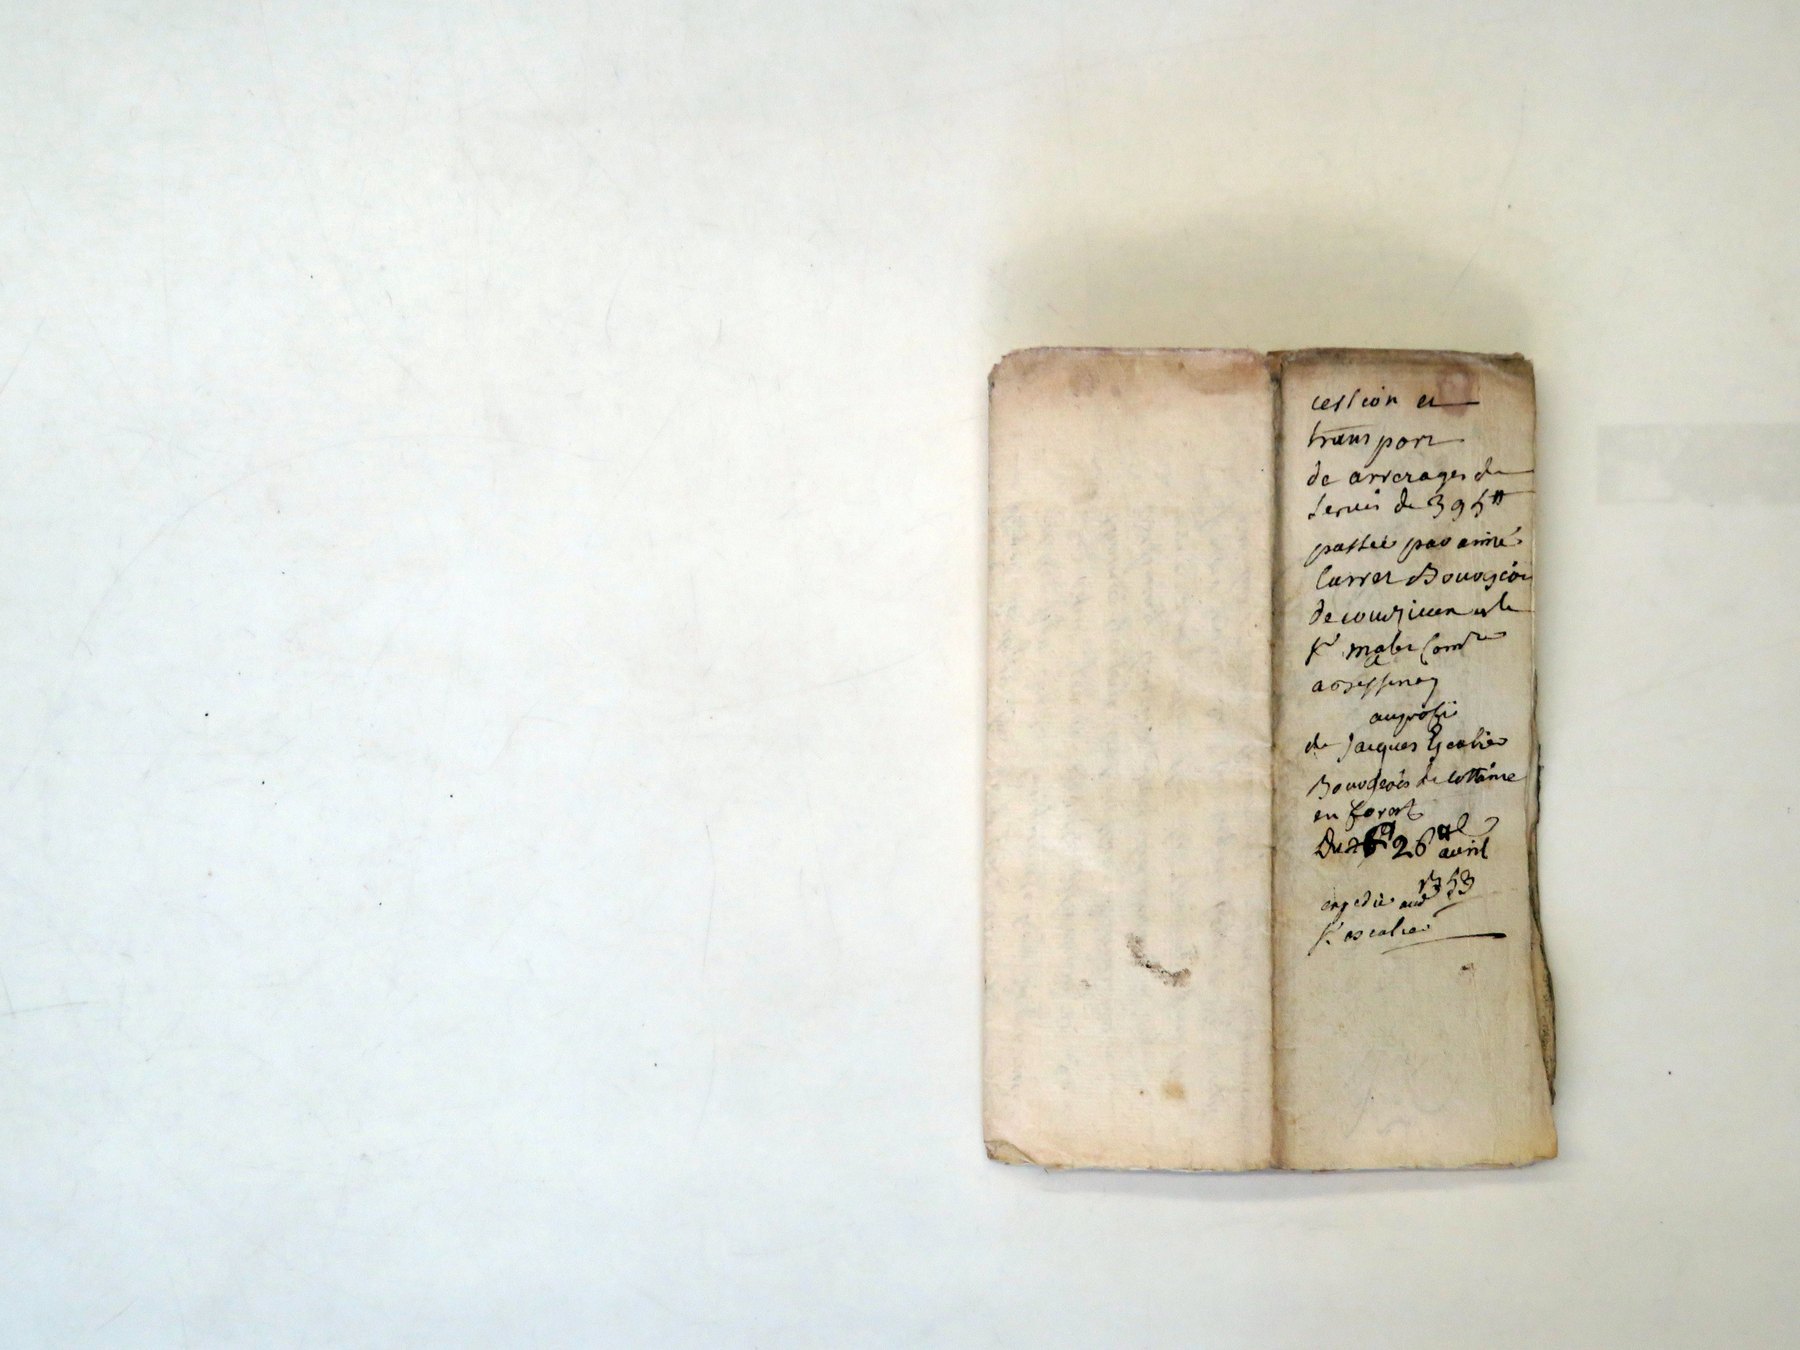 cession et
transport
de arrerages de
servis de 395#
passée par aimé
Carrez Bourgeois
de courzieu et le
Sr malet Comre
a
au profit
de Jacques Escalier
Bourgeois de Cottance
en forest
Du 26 avril
1753
expedié aud
Sr escalier